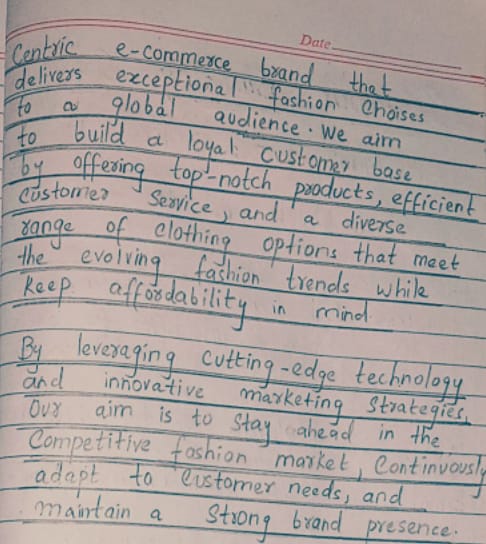 Date
Centric e-commerce brand that
delivers exceptional fashion Choises
to a global audience. We aim
to build a loyal customer base
by offering top-notch products, efficient
customer Service, and a diverse
range of clothing options that meet
the evolving fashion trends while
keep affordability in mind.
By leveraging cutting-edge technology
and innovative marketing Strategies,
Our aim is to Stay ahead in the
Competitive fashion market, Continuously
adapt to Customer needs, and
maintain a Strong brand presence.